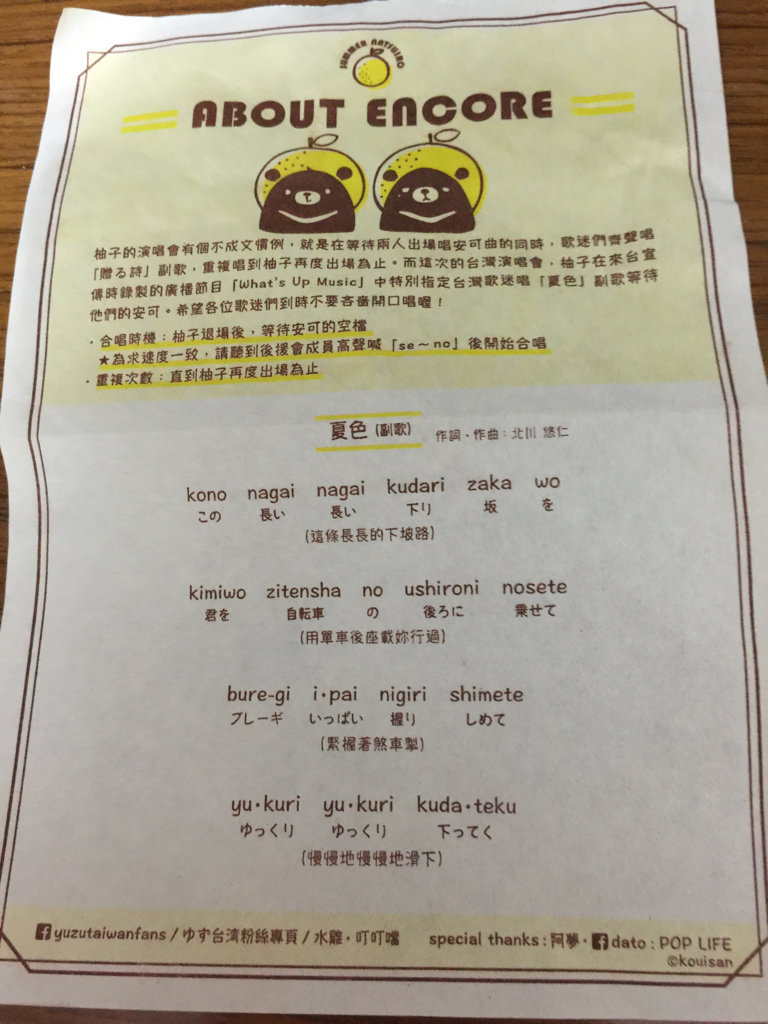 SUMMER NATSUIRO
ABOUT ENCORE
柚子的演唱會有個不成文慣例，就是在等待兩人出場唱安可曲的同時，歌迷們齊聲唱
「贈る詩」副歌，重複唱到柚子再度出場為止。而這次的台灣演唱會，柚子在來台宣
傳時錄製的廣播節目「What's Up Music」中特別指定台灣歌迷唱「夏色」副歌等待
他們的安可。希望各位歌迷們到時不要吝嗇開口唱喔！
・合唱時機：柚子退場後，等待安可的空檔
★為求速度一致，請聽到後援會成員高聲喊「se～no」後開始合唱
・重複次數：直到柚子再度出場為止
夏色（副歌） 作詞・作曲：北川 悠仁
kono nagai nagai kudari zaka wo
この 長い 長い 下り 坂 を
（這條長長的下坡路）
kimiwo zitensha no ushironi nosete
君を 自転車 の 後ろに 乗せて
（用單車後座載妳行過）
bure-gi i・pai nigiri shimete
ブレーギ いっぱい 握り しめて
（緊握著煞車掣）
yu・kuri yu・kuri kuda・teku
ゆっくり ゆっくり 下ってく
（慢慢地慢慢地滑下）
yuzutaiwanfans / ゆず台湾粉絲專頁 / 水雞・叮叮噹 special thanks：阿夢・dato：POP LIFE
©kouisan